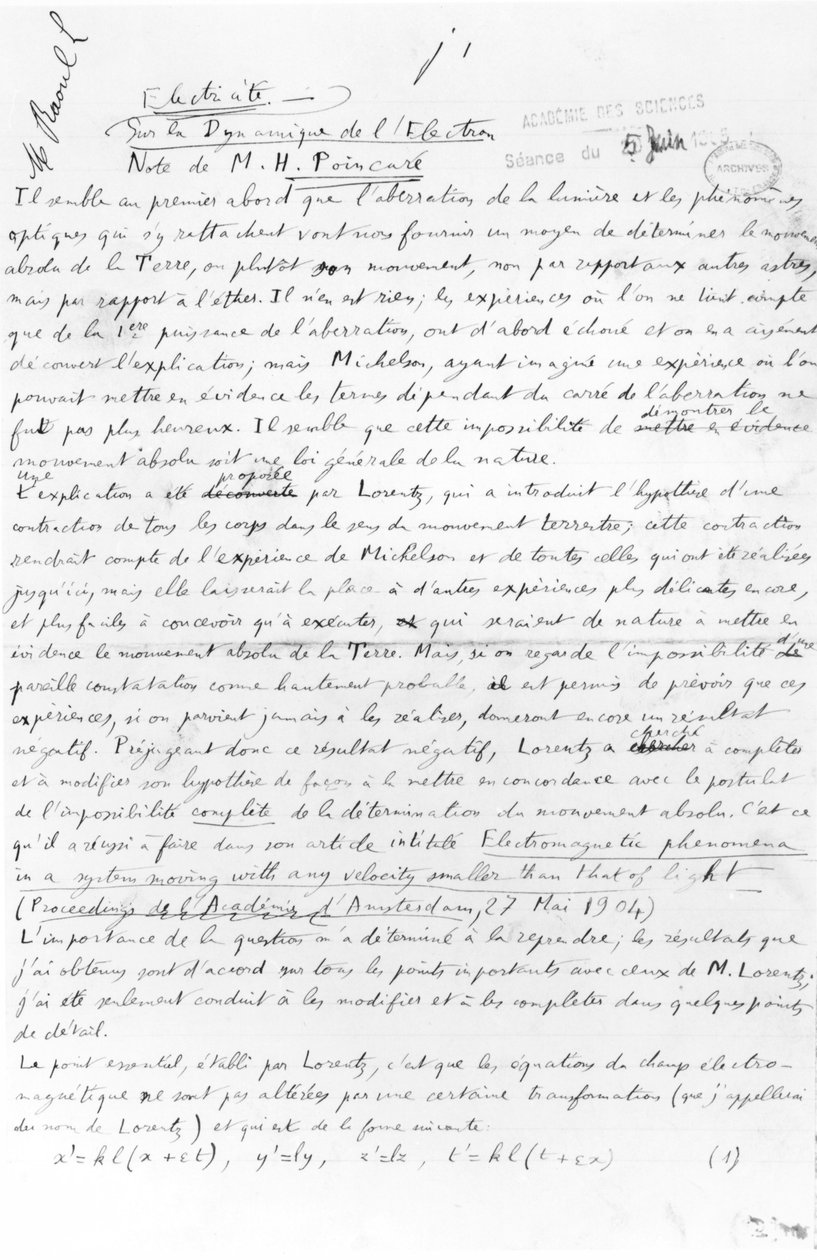 Mr Raoul L
j 1
Electricité. —
Sur la Dynamique de l'Electron
Note de M. H. Poincaré
ACADÉMIE DES SCIENCES
Séance du 5 Juin 1905
ARCHIVES
Il semble au premier abord que l'aberration de la lumière et les phénomènes
optiques qui s'y rattachent vont nous fournir un moyen de déterminer le mouvement
absolu de la Terre, ou plutôt son mouvement, non par rapport aux autres astres,
mais par rapport à l'éther. Il n'en est rien; les expériences où l'on ne tient compte
que de la 1ère puissance de l'aberration, ont d'abord échoué et on en a aisément
découvert l'explication; mais Michelson, ayant imaginé une expérience où l'on
pouvait mettre en évidence les termes dépendant du carré de l'aberration ne
fut pas plus heureux. Il semble que cette impossibilité de mettre en évidence démontrer le
mouvement absolu soit une loi générale de la nature.
L' une explication a été découverte proposée par Lorentz, qui a introduit l'hypothèse d'une
contraction de tous les corps dans le sens du mouvement terrestre; cette contraction
rendrait compte de l'expérience de Michelson et de toutes celles qui ont été réalisées
jusqu'ici, mais elle laisserait la place à d'autres expériences plus délicates encore,
et plus faciles à concevoir qu'à exécuter, et qui seraient de nature à mettre en
évidence le mouvement absolu de la Terre. Mais, si on regarde l'impossibilité de d'une
pareille constatation comme hautement probable, il est permis de prévoir que ces
expériences, si on parvient jamais à les réaliser, donneront encore un résultat
négatif. Préjugeant donc ce résultat négatif, Lorentz a chercher cherché à compléter
et à modifier son hypothèse de façon à la mettre en concordance avec le postulat
de l'impossibilité complète de la détermination du mouvement absolu. C'est ce
qu'il a réussi à faire dans son article intitulé Electromagnetic phenomena
in a system moving with any velocity smaller than that of light
(Proceedings de l'Académie d'Amsterdam, 27 Mai 1904)
L'importance de la question m'a déterminé à la reprendre; les résultats que
j'ai obtenus sont d'accord sur tous les points importants avec ceux de M. Lorentz;
j'ai été seulement conduit à les modifier et à les compléter dans quelques points
de détail.
Le point essentiel, établi par Lorentz, c'est que les équations du champ électro-
magnétique ne sont pas altérées par une certaine transformation (que j'appellerai
du nom de Lorentz) et qui est de la forme suivante:
x' = kl(x + εt), y' = ly, z' = lz, t' = kl(t + εx) (1)